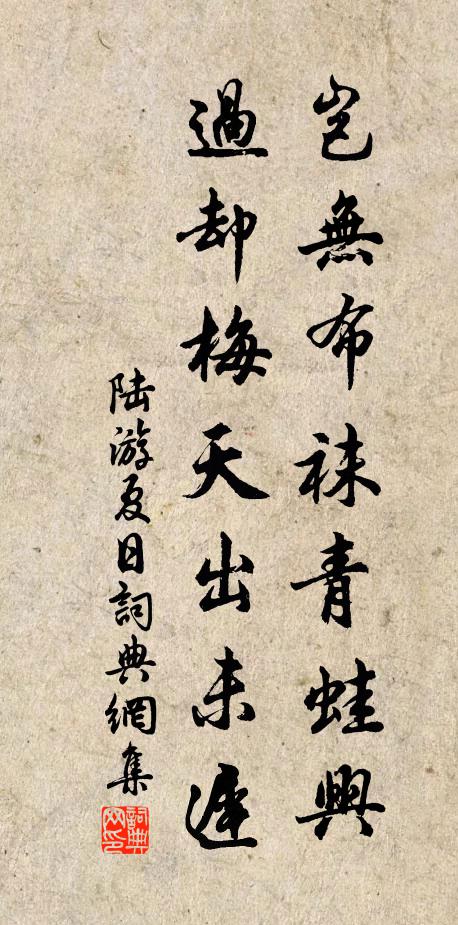 豈無布襪青蛙興
過却梅天出未遲
陆游夏日詞典網集
詞典网印